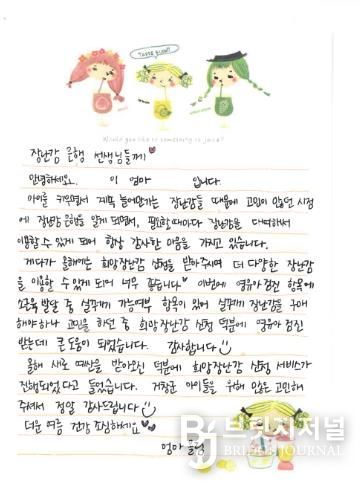 Taste good!
Would you like to something to juice?
장난감 은행 선생님들께♥
안녕하세요. 이 엄마 입니다.
아이를 키우면서 계속 늘어만가는 장난감들 때문에 고민이 많던 시점
에 장난감 은행을 알게 되면서, 필요할때마다 장난감을 대여하여
이용할 수 있게 되어 항상 감사한 마음을 가지고 있습니다.
게다가 올해에는 희망장난감 신청을 받아주시며 더 다양한 장난감
을 이용할 수 있게 되어 너무 좋습니다♥ 이번에 영유아검진 항목에
소근육 발달 중 실꾸기 가능여부 항목이 있어 실꾸기 장난감을 구매
해야하나 고민을 하던 중 희망장난감 신청 덕분에 영유아 검진
받는데 큰 도움이 되었습니다. 감사합니다
올해 새로 예산을 받아오신 덕분에 희망장난감 신청 서비스가
진행되었다고 들었습니다. 거창군 아이들을 위해 오늘도 고민해
주셔서 정말 감사드립니다
더운 여름 건강 조심하세요♥♥
엄마 올림
브릿지저널
BRIDGE JOURNAL